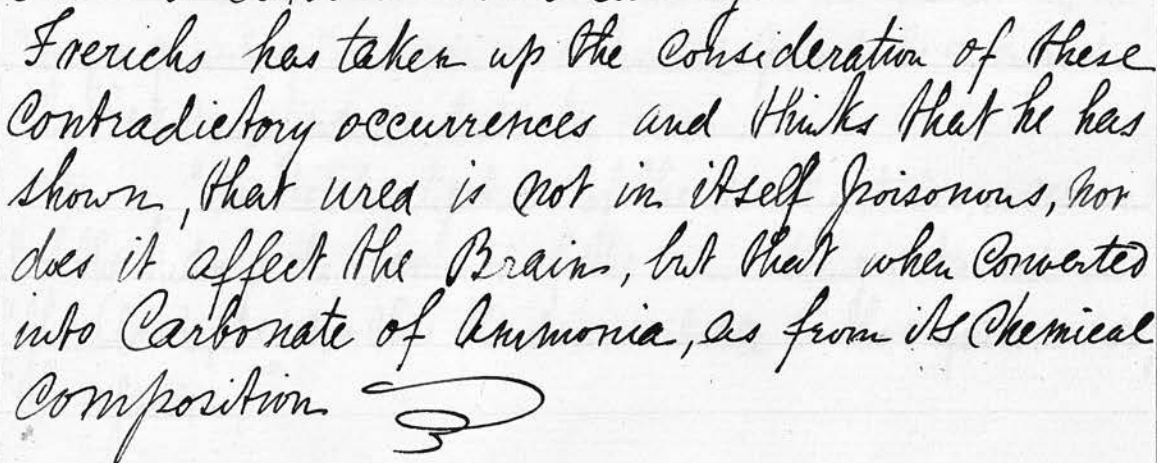 Frerichs has taken up the consideration of these
contradictory occurrences and thinks that he has
shown, that urea is not in itself poisonous, nor
does it affect the Brain, but that when Converted
into Carbonate of Ammonia, as from its Chemical
Composition